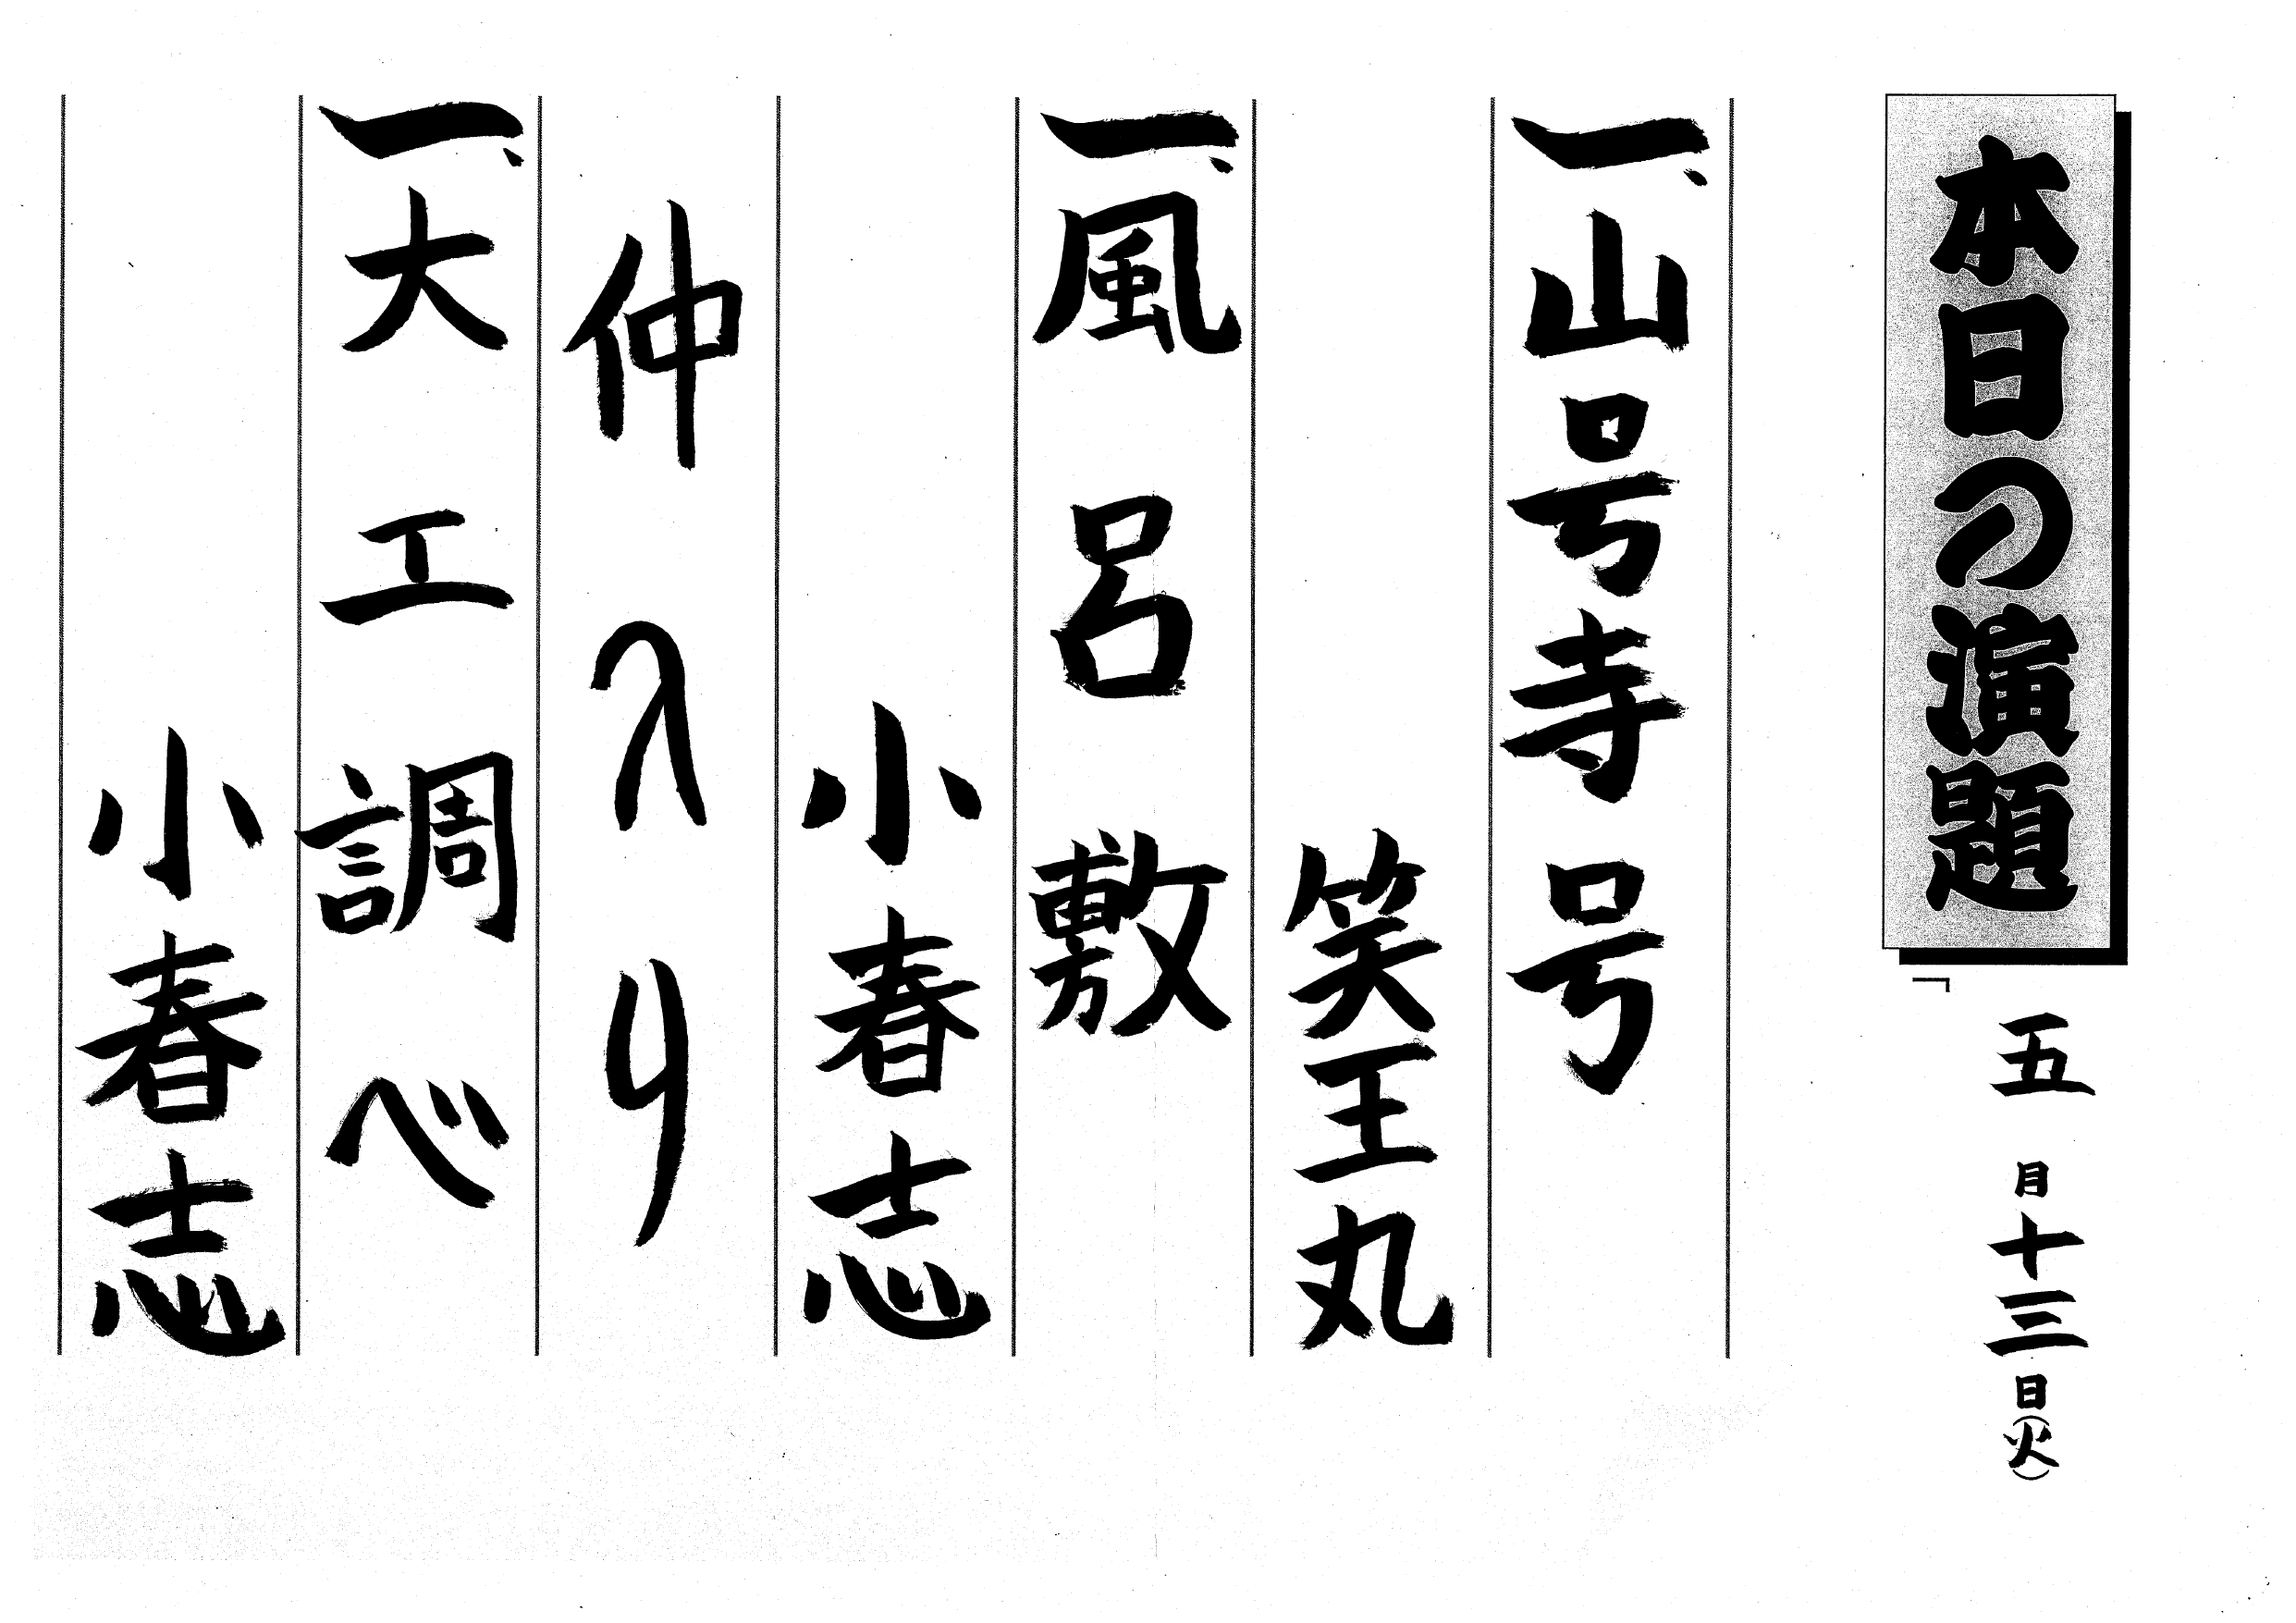 本日の演題
五月十三日(火)
一、山号寺号
笑王丸
一、風呂敷
小春志
仲入り
一、大工調べ
小春志